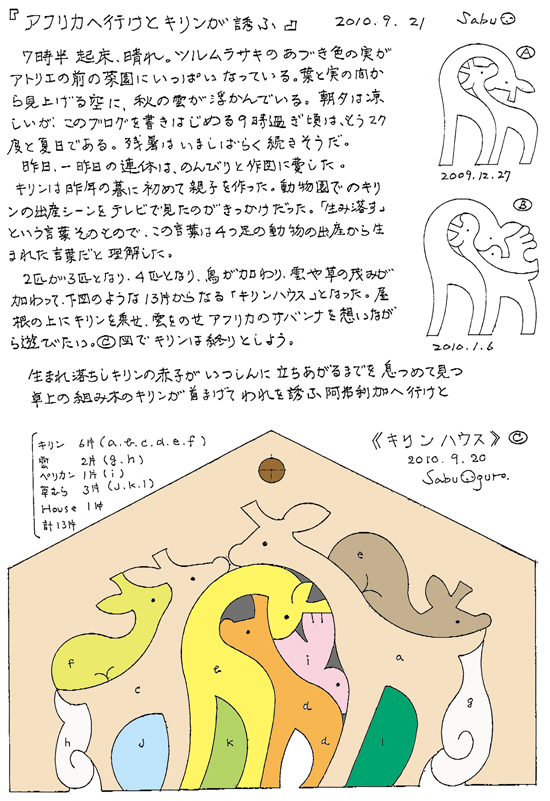 『アフリカへ行けとキリンが誘ふ』 2010.9.21 Sabu
7時半 起床、晴れ。ツルムラサキのあづき色の実が
アトリエの前の菜園にいっぱい なっている。葉と実の向か
ら見上げる空に、秋の雲が浮かんでいる。朝夕は涼
しいが、このブログを書きはじめる9時過ぎ頃は、もう27
度と夏日である。残暑は いましばらく続きそうだ。
昨日、一昨日の連休は、のんびりと作図に愛した。
キリンは昨年の暮に初めて親子を作った。動物園でのキリ
ンの出産シーンをテレビで見たのがきっかけだった。「生み落す」
という言葉そのもので、この言葉は4つ足の動物の出産から生
まれた言葉だと理解した。
2匹が3匹となり、4匹となり、鳥が加わり、雲や草の茂みが
加わって、下図のような13片からなる「キリンハウス」となった。屋
根の上にキリンを乗せ、雲をのせ アフリカのサバンナを想いなが
ら遊びたい。Ⓒ図でキリンは終りとしよう。
生まれ落ちしキリンの赤子が いつしんに 立ちあがるまでを 息つめて見つ
卓上の組み木のキリンが首まげて われを誘ふ 阿弗利加へ行けと
Ⓐ
2009.12.27
Ⓑ
2010.1.6
キリン 6片(a.b.c.d.e.f)
雲 2片(g.h)
ペリカン 1片(i)
草むら 3片(J.K.l)
House 1片
計13片
《キリンハウス》Ⓒ
2010.9.20
Sabu Oguro.
e
f
b
i
a
c
d
g
h
J
k
d
l